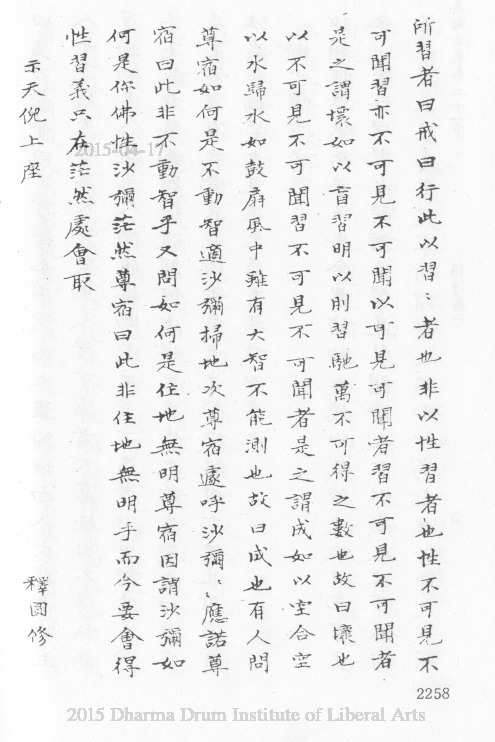 所習者曰戒曰行此以習〻者也非以性習者也性不可見不
可聞習亦不可見不可聞以可見可聞者習不可見不可聞者
是之謂壞如以盲習明以刖習馳萬不可得之數也故曰壞也
以不可見不可聞習不可見不可聞者是之謂成如以空合空
以水歸水如鼓扇風中雖有大智不能測也故曰成也有人問
尊宿如何是不動智適沙彌掃地次尊宿遽呼沙彌〻應諾尊
宿曰此非不動智乎又問如何是住地無明尊宿因謂沙彌如
何是你佛性沙彌茫然尊宿曰此非住地無明乎而今要會得
性習義只在茫然處會取
示天倪上座
釋圓修
2015-04-17
2258
2015 Dharma Drum Institute of Liberal Arts